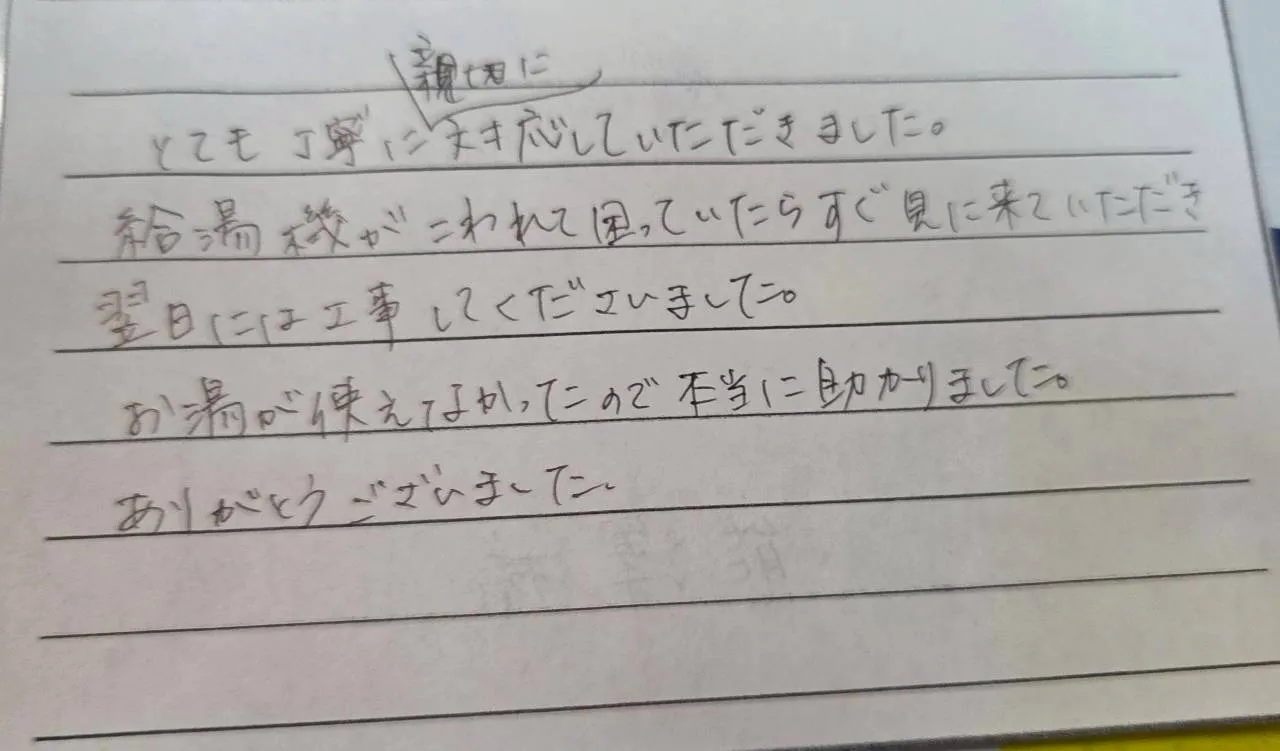 とても丁寧に親切に対応していただきました。
給湯機がこわれて困っていたらすぐ見に来ていただき
翌日には工事してくださいました。
お湯が使えなかったので本当に助かりました。
ありがとうございました。